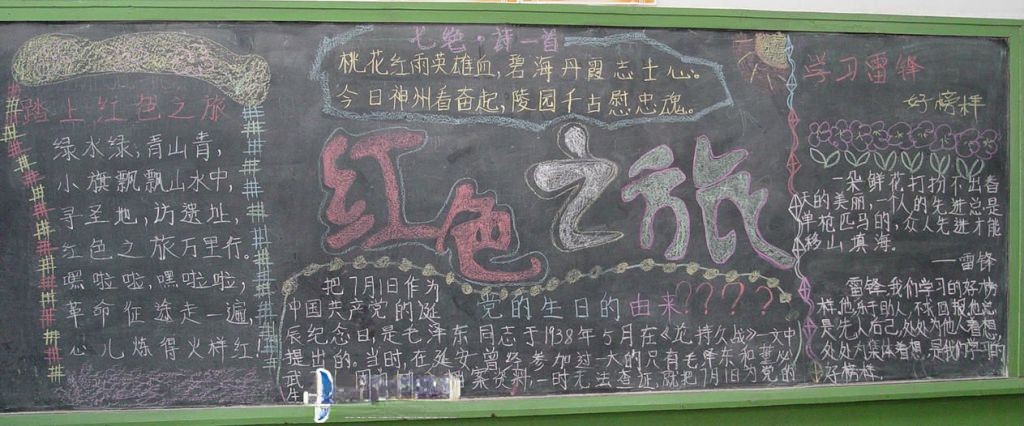 踏上红色之旅
绿水绿,青山青,
小旗飘飘山水中,
寻圣地,访遗址,
红色之旅万里行。
嘿啦啦,嘿啦啦,
革命征途走一遍,
心儿炼得火样红
七绝·诗一首
桃花红雨英雄血,碧海丹霞志士心。
今日神州看奋起,陵园千古慰忠魂。
红色之旅
把7月1日作为
中国共产党的诞
辰纪念日,是毛泽东同志于1938年5月在《论持久战》一文中
提出的。当时,在延安曾经参加过一大的只有毛泽东和董必
武
案资料,一时无法查证,就把7月1日为党的
生
党的生日的由来????
学习雷锋
好榜样
一朵鲜花打扮不出春
天的美丽,一个人的先进总是
单枪匹马的,众人先进才能
移山填海。
——雷锋
雷锋我们学习的好榜
样,他乐于助人,不求回报,他总
是先人后己,处处为他人着想,
处处为集体着想,是我们学习的
好榜样。